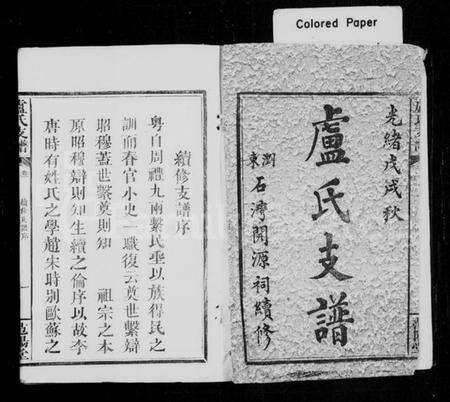 Colored Paper
光緒戊戌秋
盧氏支譜
瀏東石灣開源祠續修
續修支譜序
粵自周禮九兩繫民垂以族得民之
訓而春官小史一職復云奠世繫辯
昭穆蓋世繫奠則知 祖宗之本
原昭穆辯則知生續之倫序以故李
唐時有姓氏之學趙宋時別歐蘇之
盧氏支譜